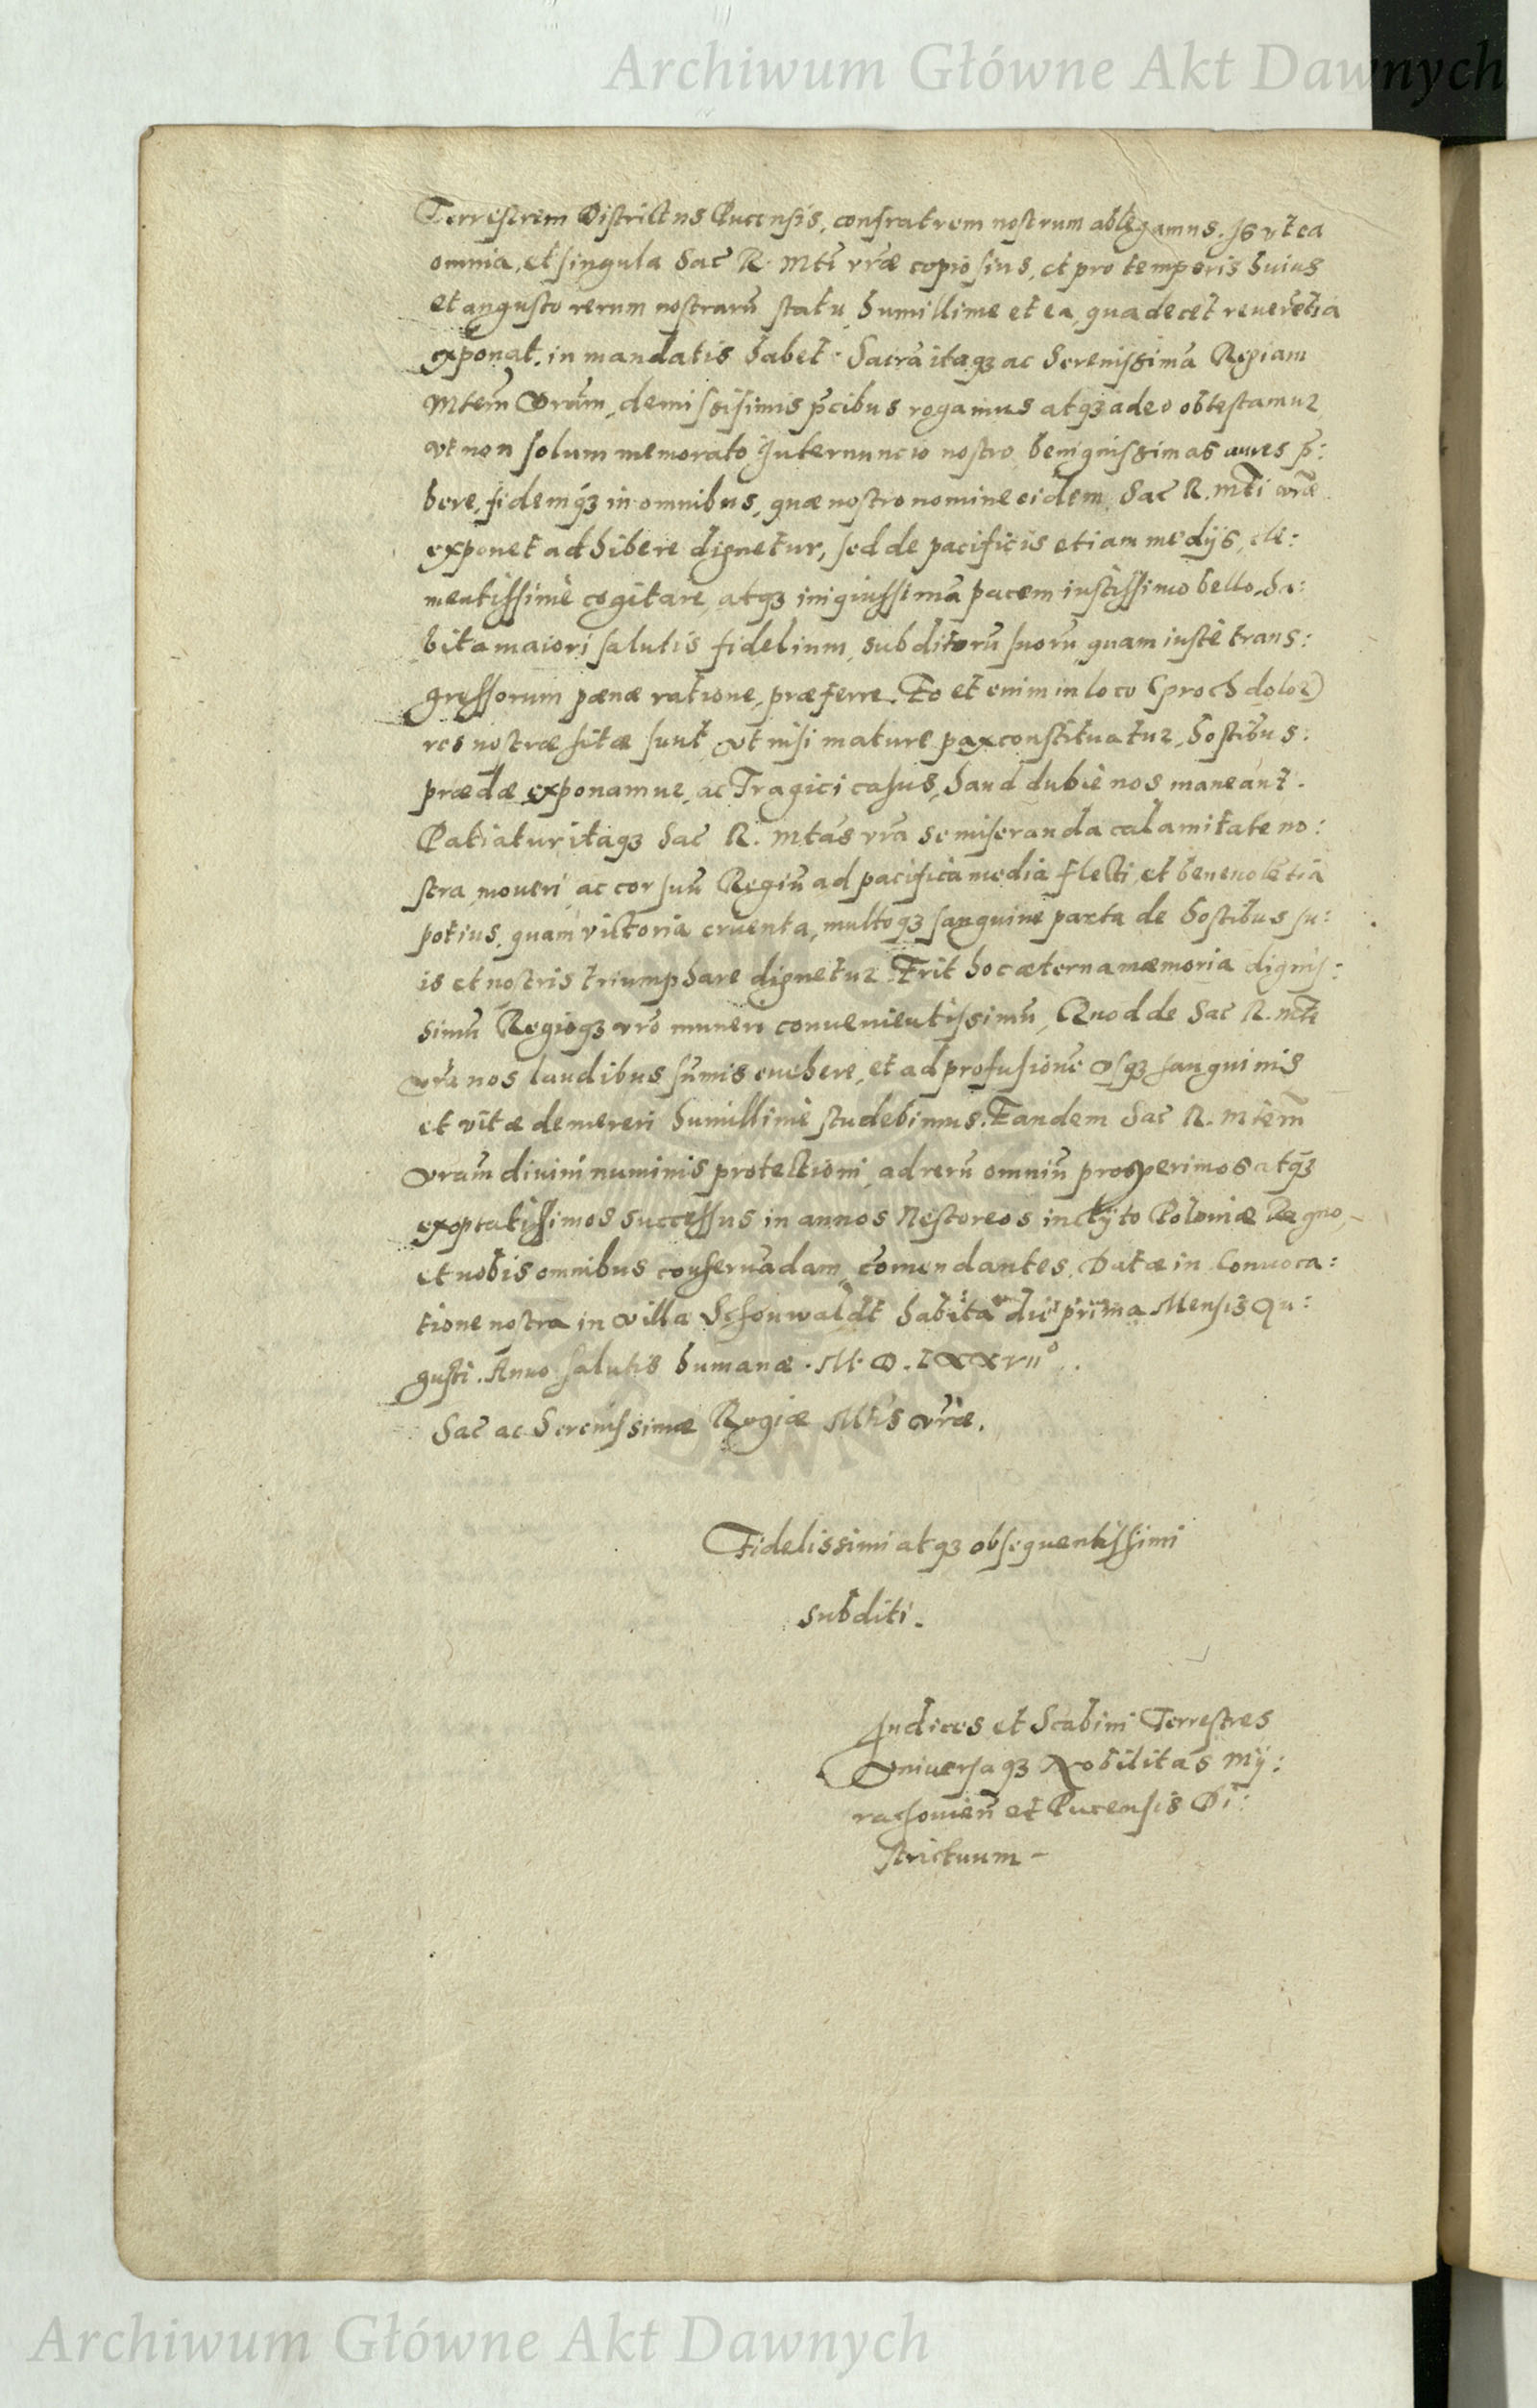 Archiwum Główne Akt Dawnych
Terrestrem Districtus Pucensis, confratrem nostrum ablegamus. Is vt ea
omnia, et singula Sac̃ R. Mti vr̃æ copiosius, et pro temporis huius
et angusto rerum nostrarũ statu, humillime et ea, qua decet reuerẽtia
exponat. in mandatis habet. Sacrã itaqꝫ ac Serenissimã Regiam
Mtem̃ Vram̃, demississimis p̃cibus rogamus atqꝫ adeo obtestamur
vt non solum memorato Internuncio nostro, benignissimas aures p̃:
bere, fidemqꝫ in omnibus, quæ nostro nomine eidem Sac̃ R. Mti vr̃æ
exponet adhibere dignetur, sed de pacificis etiam medijs, cle:
mentissimè cogitare, atqꝫ iniquissimã pacem iustissimo bello, ha:
bita maiori salutis fidelium, subditorũ suorũ, quam iustè trans:
gressorum pænæ ratione, præferre. Eo et enim in loco (proch dolor)
res nostræ sitæ sunt, vt nisi mature pax constituatur, hostibus:
prædæ exponamur, ac Tragici casus, haud dubiè nos maneant.
Patiatur itaqꝫ Sac̃ R. Mtas vrã se miseranda calamitate no:
stra, moueri, ac cor suũ Regiũ ad pacifica media flecti, et beneuolẽtia
potius, quam victoria cruenta, multoqꝫ sanguine parta de hostibus su:
is et nostris triumphare dignetur. Erit hoc æterna mæmoria dignis:
simũ Regioqꝫ vr̃o muneri conuenientissimũ, Quod de Sac̃ R. Mte
vrã nos laudibus sũmis euehere, et ad profusionẽ vsqꝫ sanguinis
et vitæ demereri humillimè studebimus. Tandem Sac̃ R. Mtem̃
Vram̃ diuini numinis protectioni, ad rerũ omniũ prosperimos atqꝫ
exoptatissimos successus in annos Nestoreos inclyto Poloniæ Regno,
et nobis omnibus conseruãdam, cõmendantes. Datæ in Conuoca:
tione nostra in villa Schonwaldt habita die prima Mensis Au:
gusti. Anno salutis humanæ. M. D. LXXVII°.
Sac̃ ac Serenissimæ Regiæ Mtis vr̃æ.
Fidelissimi atqꝫ obsequentissimi
subditi.
Iudices et Scabini Terrestres
Vniuersaqꝫ Nobilitas Mij:
rachouien̄ et Pucensis Di:
strictuum
Archiwum Główne Akt Dawnych